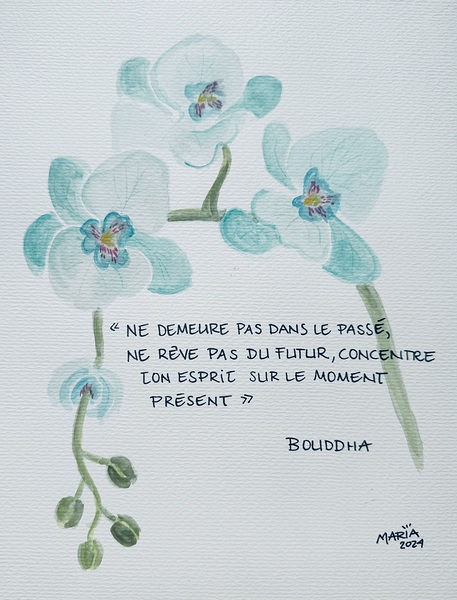 « NE DEMEURE PAS DANS LE PASSÉ,
NE RÊVE PAS DU FUTUR, CONCENTRE
TON ESPRIT SUR LE MOMENT
PRÉSENT »
BOUDDHA
MARÏA
2024